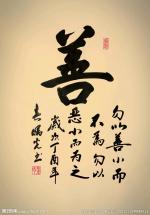 善
勿以善小而
不為勿以
惡小而為之
歲次丁酉年